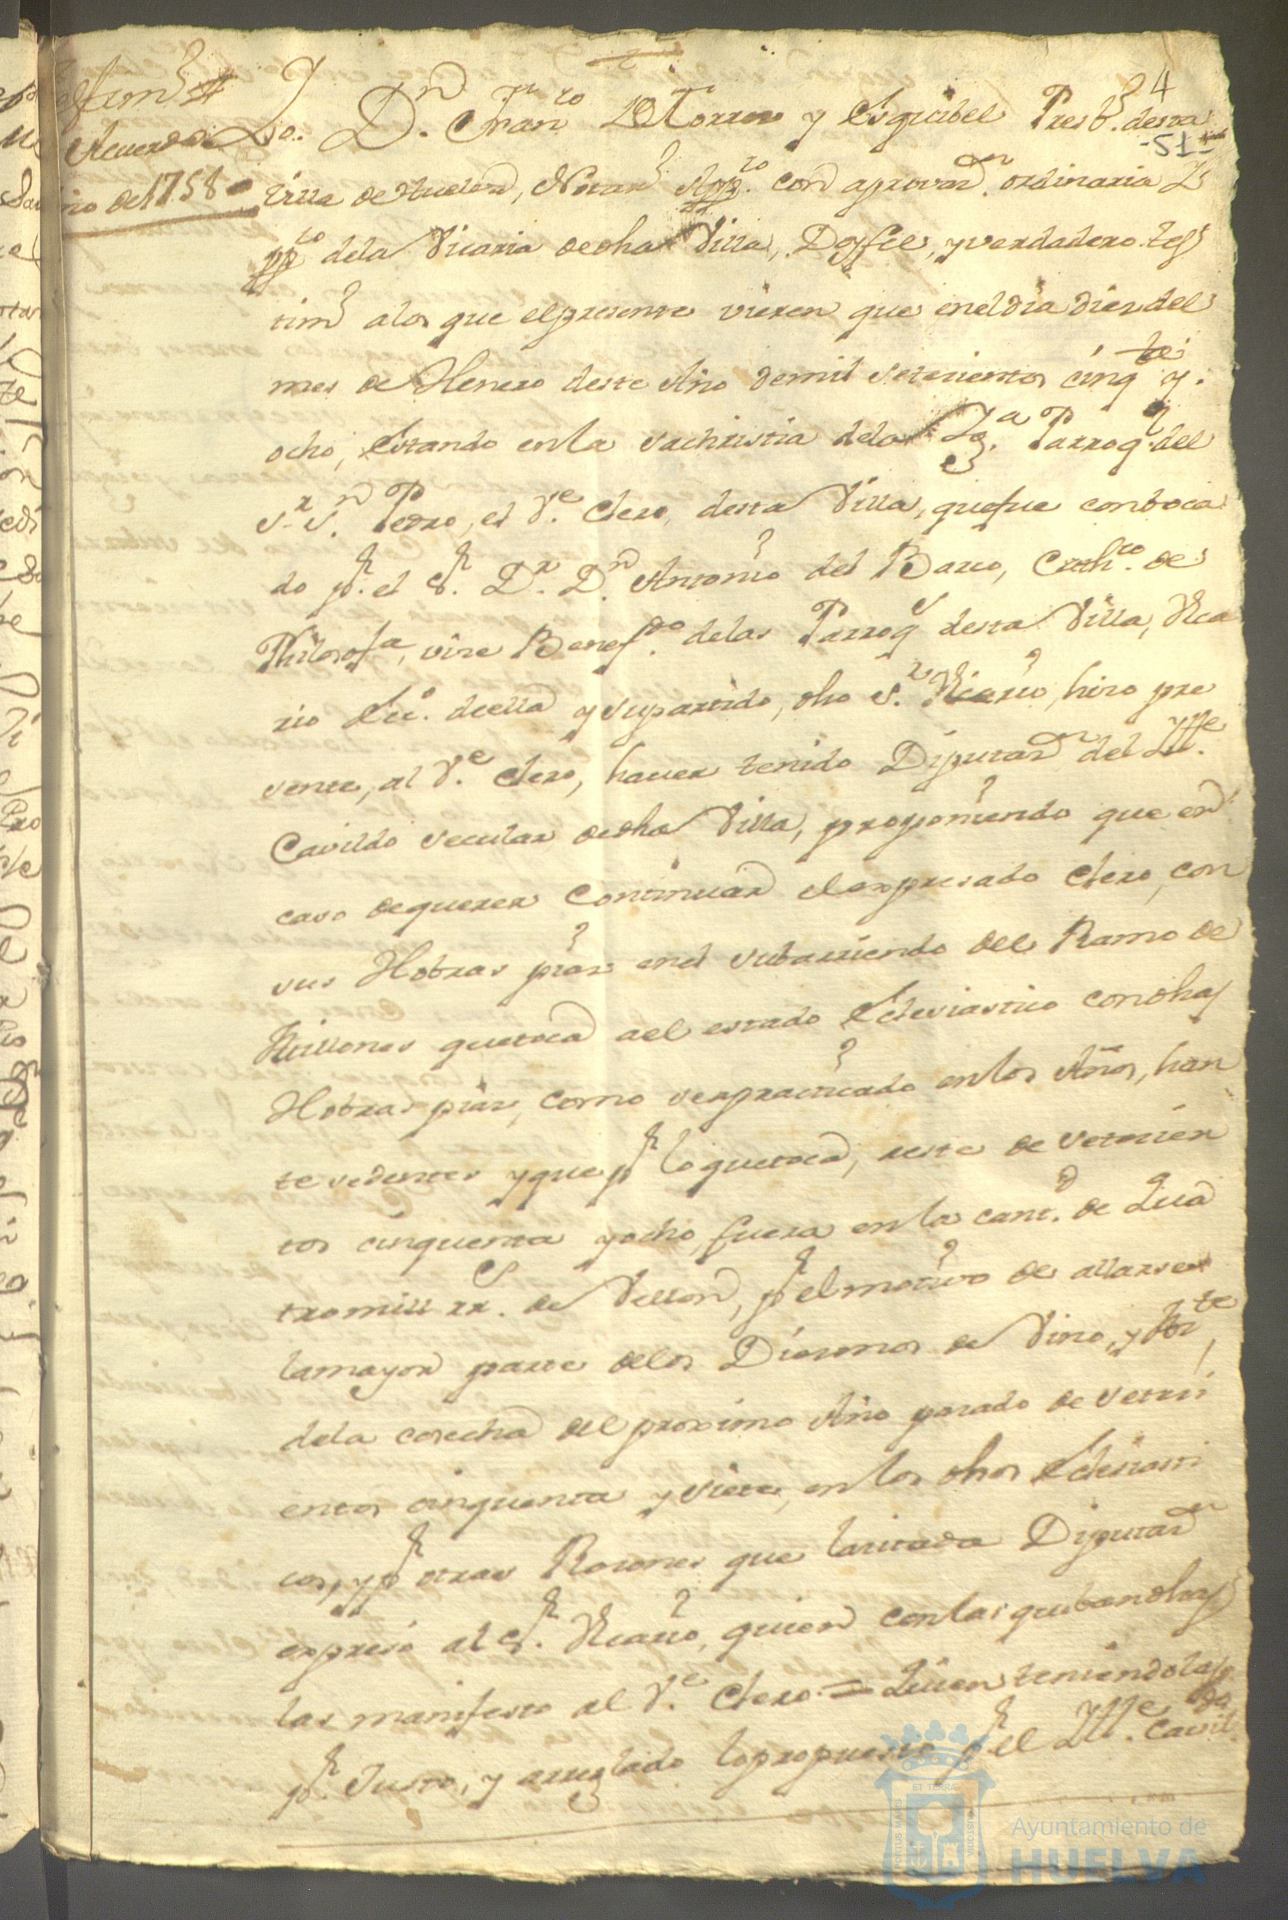 4
Acuerdo
nio de 1758
-51-
Yo. Dn. Franco Torres y Esquibel Presbo. desta
Villa de Huelva, Notario Appco. con aprovaon. ordinaria Y
ppco dela Vicaria de dha Villa, Doy fee, y verdadero tes
timo alos que el presente vieren que eneldia dies del
mes de Henero deste Año demil setecientos cinqta y
ocho, Estando enla sachristia dela Yga. Parroql. del
Sr. Sn. Pedro, el Ve. Clero desta Villa, que fue conboca
do pr. el Sr. Dr. Dn. Antonio del Barco, Cathco. de
Philosofa, vice Benefdo. delas Parroqs desta Villa, Vica
rio Ecco. deella y supartido, dho Sr. Vicario, hizo pre
sente, al Ve. Clero, haver tenido Diputaon del Ylle.
Cavildo secular dedha Villa, proponiendo que en
caso dequerer Continuar el expresado Clero, con
sus Hobras pias enel subarriendo del Ramo de
Millones quetoca ael estado Eclesiastico condhas
Hobras pias, como sexpracticado enlos Años, han
tesedentes yque pr loquetoca, aeste de setecien
tos cinquenta yocho, fuera en la cantd. de Qua
tro mill rrs. de Vellon, pr elmotivo de allarse
lamayor parte delos Diesmos de Vino, y
dela cosecha del proximo Año pasado de seteci
entos cinquenta y siete, enlos dhos Eclesiasti
cos, y pr otras Rasones que lacitada Diputaon
expresó al Sr. Vicario, quien con las que ban dhas
las manifesto al Ve. Clero = Quien teniendolas
pr Justo, y arreglado lo propuesto pr el Ylle. Cavildo
Ayuntamiento de
HUELVA